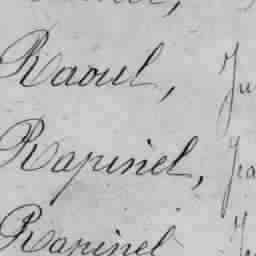 Raoul, Ju
Rapinel, Jea
Rapinel